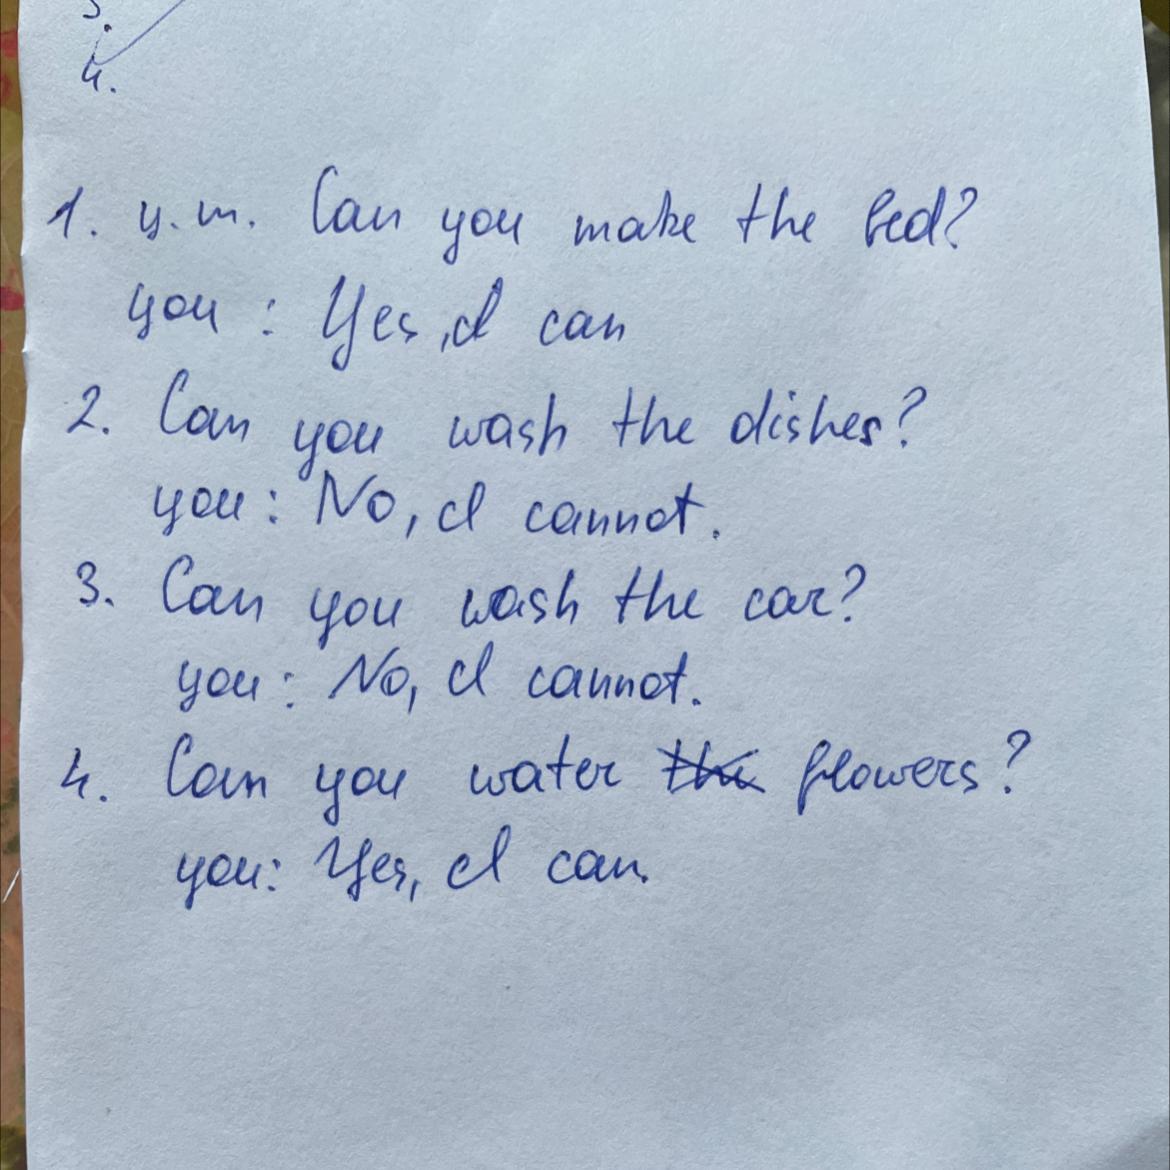 3.
4.
1. y.m. Can you make the bed?
you : Yes, I can
2. Can you wash the dishes?
you: No, I cannot.
3. Can you wash the car?
you: No, I cannot.
4. Can you water the flowers?
you: Yes, I can.